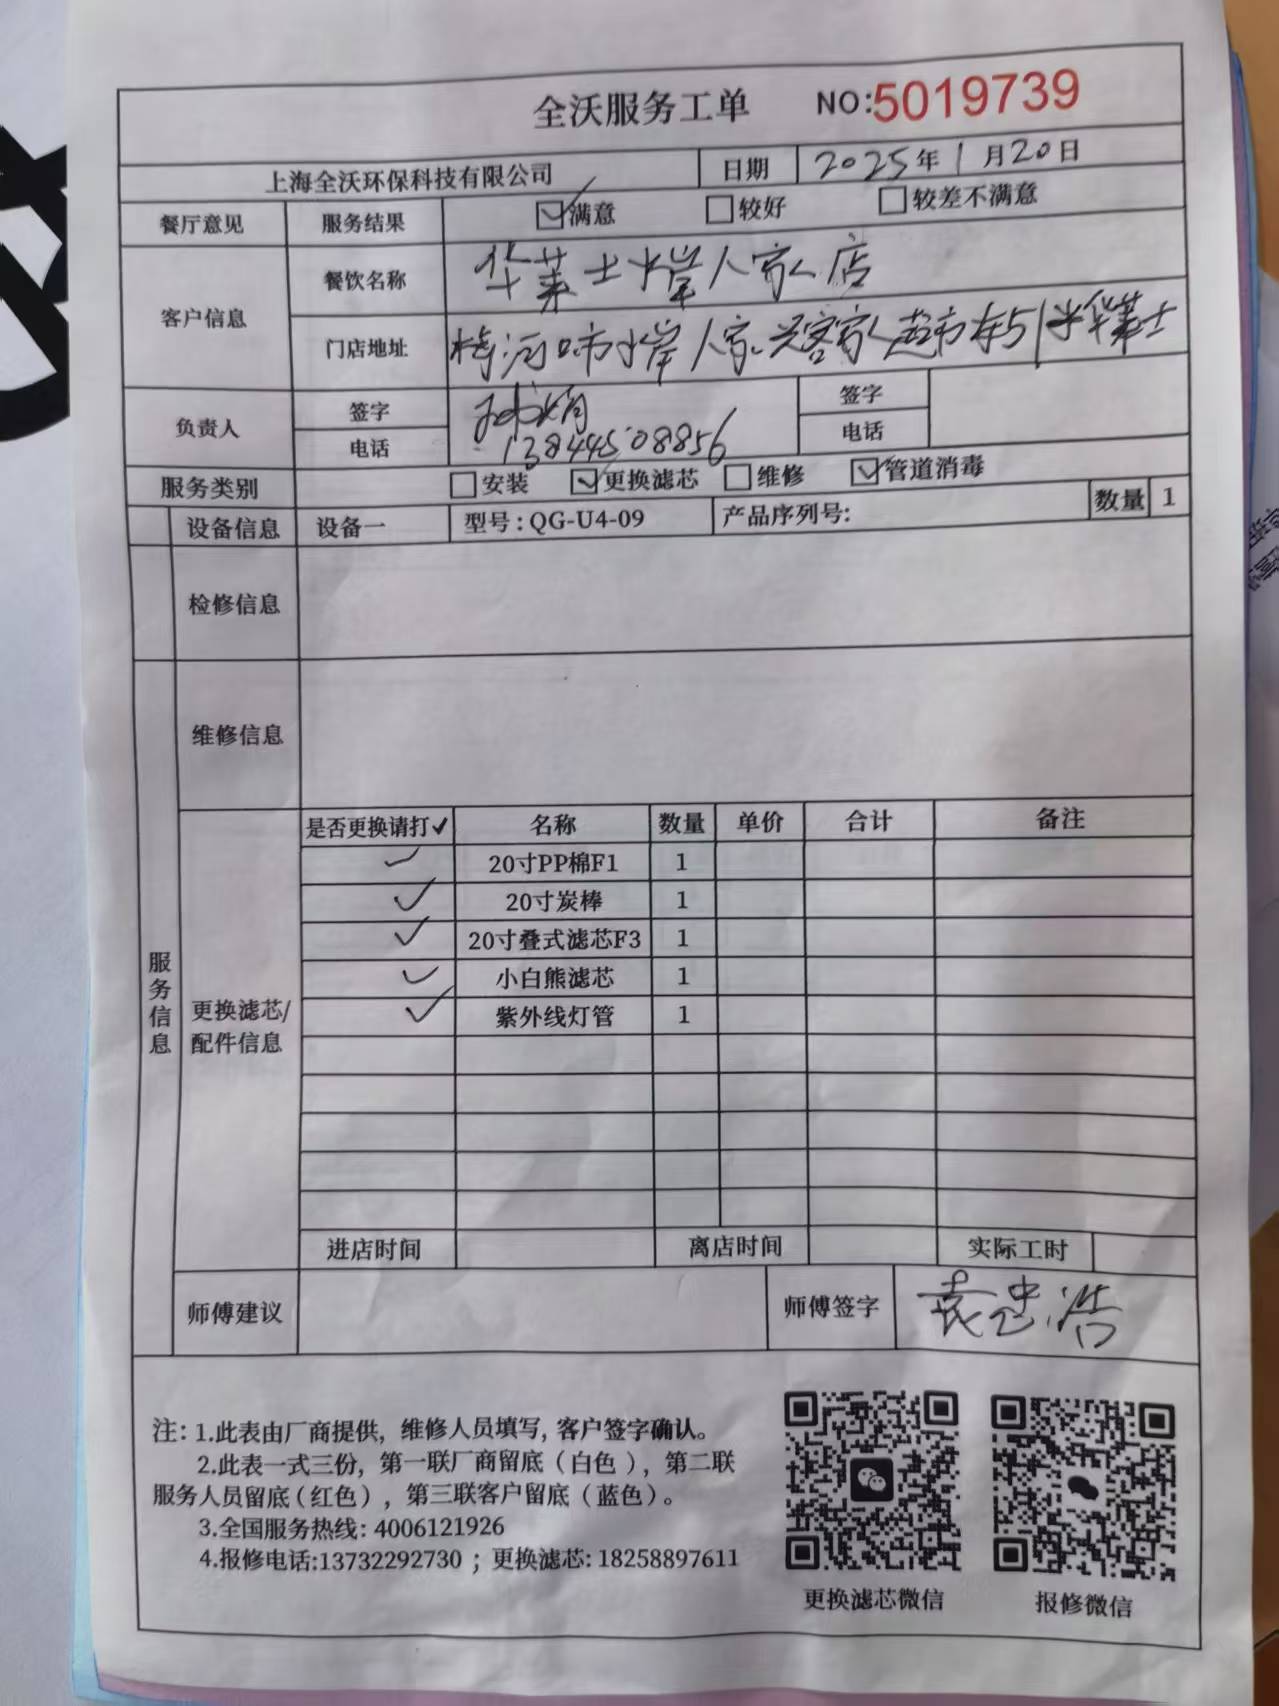 全沃服务工单 NO:5019739
上海全沃环保科技有限公司 日期 2025年1月20日
餐厅意见 服务结果 ☑满意 □较好 □较差不满意
客户信息 餐饮名称 华莱士水岸人家店
门店地址 梅河口市水岸人家 客家人超市东51米华莱士
负责人 签字 签字
电话 13844508856 电话
服务类别 □安装 ☑更换滤芯 □维修 ☑管道消毒
设备信息 设备一 型号:QG-U4-09 产品序列号: 数量 1
检修信息
维修信息
服务信息
更换滤芯/配件信息
是否更换请打✓ 名称 数量 单价 合计 备注
✓ 20寸PP棉F1 1
✓ 20寸炭棒 1
✓ 20寸叠式滤芯F3 1
✓ 小白熊滤芯 1
✓ 紫外线灯管 1
进店时间 离店时间 实际工时
师傅建议 师傅签字 袁忠浩
注:1.此表由厂商提供,维修人员填写,客户签字确认。
2.此表一式三份,第一联厂商留底(白色),第二联
服务人员留底(红色),第三联客户留底(蓝色)。
3.全国服务热线:4006121926
4.报修电话:13732292730;更换滤芯:18258897611
更换滤芯微信 报修微信